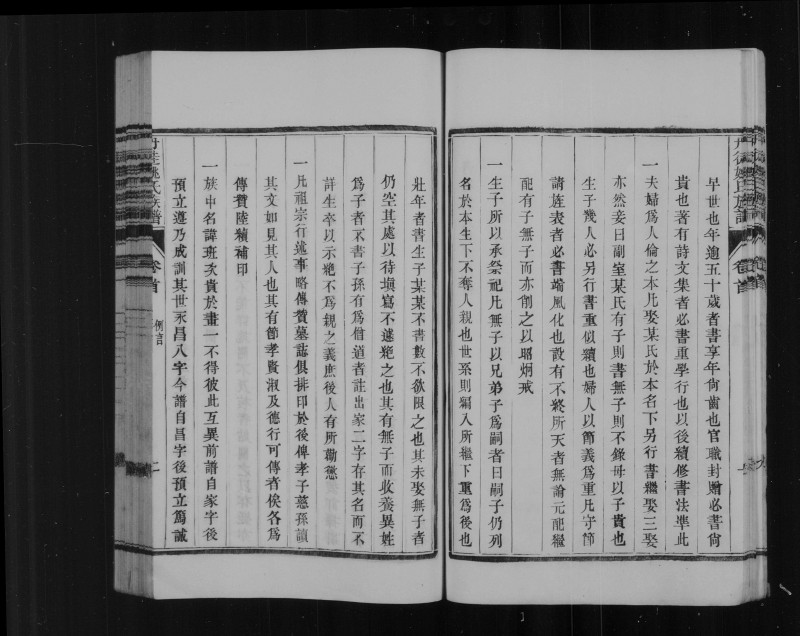 早世也年逾五十歲者書享年尙齒也官職封贈必書尙
貴也著有詩文集者必書重學行也以後續修書法準此
一夫婦爲人倫之本凡娶某氏於本名下另行書繼娶三娶
亦然妾曰副室某氏有子則書無子則不錄母以子貴也
生子幾人必另行書重似續也婦人以節義爲重凡守節
請旌表者必書端風化也設有不終所天者無論元配繼
配有子無子而亦削之以昭炯戒
一生子所以承祭祀凡無子以兄弟子爲嗣者曰嗣子仍列
名於本生下不奪人親也世系則編入所繼下重爲後也
壯年者書生子某某不書數不欲限之也其未娶無子者
仍空其處以待塡寫不遽絕之也其有無子而收養異姓
爲子者不書子孫有爲僧道者註出家二字存其名而不
詳生卒以示絕不爲親之義庶後人有所勸懲
一凡祖宗行述事略傳贊墓誌俱排印於後俾孝子慈孫讀
其文如見其人也其有節孝賢淑及德行可傳者俟各爲
傳贊陸續補印
一族中名諱班次貴於畫一不得彼此互異前譜自家字後
預立遵乃成訓其世永昌八字今譜自昌字後預立篤誠
丹徒姚氏族譜
卷首
例言
二